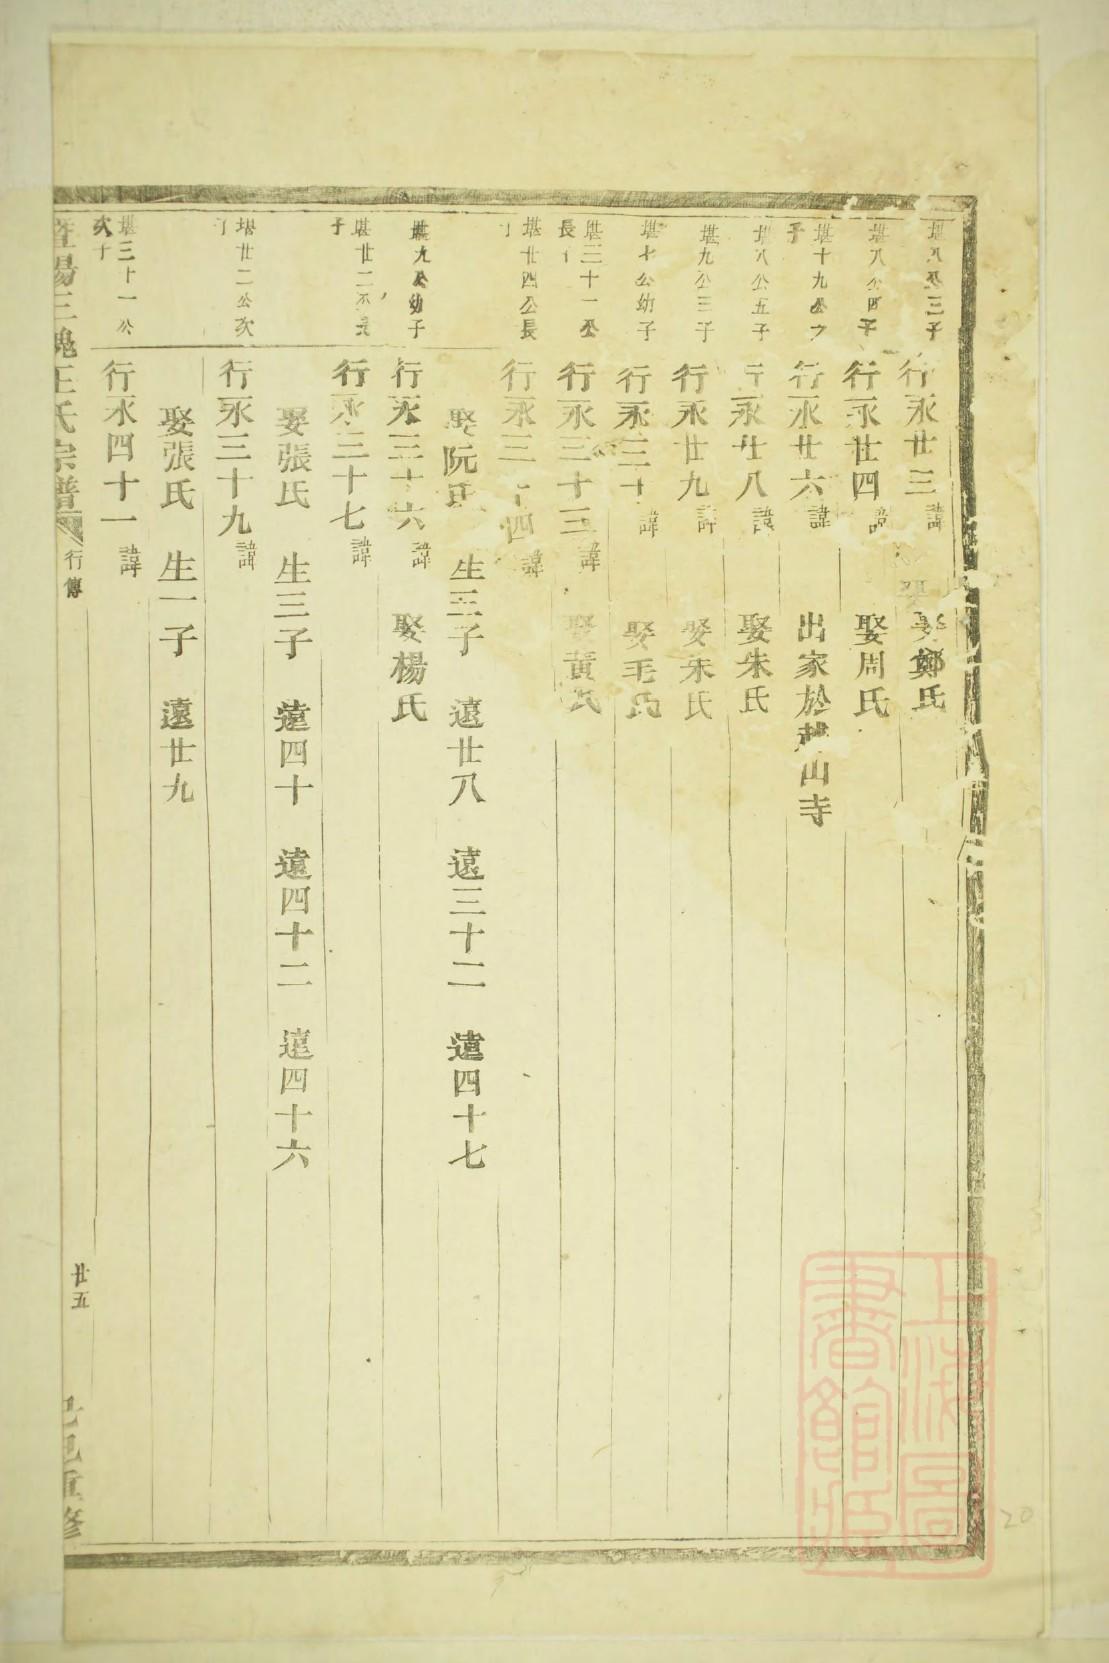 堪八公三子
行永廿三諱
娶鄭氏
堪八公四子
行永廿四諱
娶周氏
堪十九公
子
行永廿六諱
出家於越山寺
堪八公五子
行永廿八諱
娶朱氏
堪九公三子
行永廿九諱
娶朱氏
堪七公幼子
行永三十諱
娶毛氏
堪三十一公
長子
行永三十三諱
娶黃氏
堪廿四公長
子
行永三十四諱
娶阮氏 生三子 遠廿八 遠三十二 遠四十七
堪九公幼子
行永三十六諱
娶楊氏
堪廿二公長
子
行永三十七諱
娶張氏 生三子 遠四十 遠四十二 遠四十六
堪廿二公次
子
行永三十九諱
娶張氏 生一子 遠廿九
堪三十一公
次子
行永四十一諱
暨陽三槐王氏宗譜 行傳 廿五 己巳重修
上海圖
書館藏
20